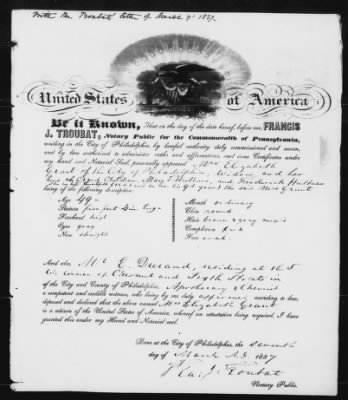 With Mr Troubat's letter of March 7th 1837.
United States of America
Be it Known, That on the day of the date hereof, before me, FRANCIS
J. TROUBAT, Notary Public for the Commonwealth of Pennsylvania,
residing in the City of Philadelphia, by lawful authority duly commissioned and sworn,
and by law authorized to administer oaths and affirmations and issue Certificates under
my hand and Notarial Seal, personally appeared Mrs Elizabeth
Grant of the City of Philadelphia, Widow, and her
two Grand Children Mary
and Frederick
the said Mrs Grant
being of the following description.
Age 49
Stature five feet 4 in Eng.
Forehead high
Eyes gray
Nose straight
Mouth ordinary
Chin round
Hair brown & gray mixed
Complexion
Face oval
And also Mr E. Durand, residing at the S
W. corner of Chesnut and Sixth Streets in
of the City and County of Philadelphia Apothecary & Chemist
a competent and credible witness, who being by me duly affirmed according to law,
deposed and declared that the above named Mrs Elizabeth Grant
is a citizen of the United States, whereof an attestation being required, I have
granted this under my Hand and Notarial seal.
Done at the City of Philadelphia, the seventh
day of March A.D. 1837
Fra. J. Troubat
Notary Public.